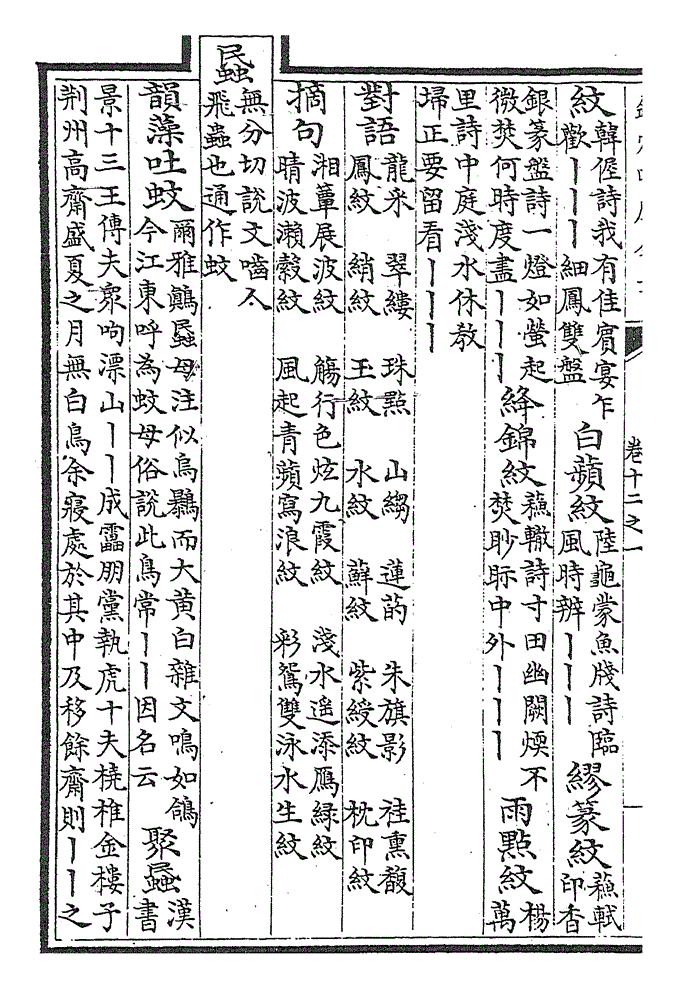 卷十二之一
紋韓偓詩我有佳賓宴乍歡丨丨丨細鳳雙盤 白蘋紋陸龜蒙魚牋詩臨風時辨丨丨丨 繆篆紋蘇軾印香
銀篆盤詩一燈如螢起微焚何時度盡丨丨丨 絳錦紋蘇轍詩寸田幽闕煗不焚眇眎中外丨丨丨 雨點紋楊萬
里詩中庭淺水休教埽正要留看丨丨丨
對語龍采 鳳紋 翠縷 綃紋 珠點 玉紋 山縐 水紋 蓮菂 蘚紋 朱旗影 紫綬紋 袿熏馥 枕印紋
摘句湘簟展波紋 晴波瀨縠紋 觴行色炫九霞紋 風起青蘋寫浪紋 淺水遥添鴈緑紋 彩鴛雙泳水生紋
蟁無分切說文嚙人飛蟲也通作蚊
韻藻吐蚊爾雅鷏蟁母注似烏鸔而大黄白雜文鳴如鴿今江東呼為蚊母俗說此鳥常丨丨因名云 聚蟁漢書
景十三王傳夫衆呴漂山丨丨成靁朋黨執虎十夫橈椎金樓子荆州高齋盛夏之月無白鳥余寢處於其中及移餘齋則丨丨之